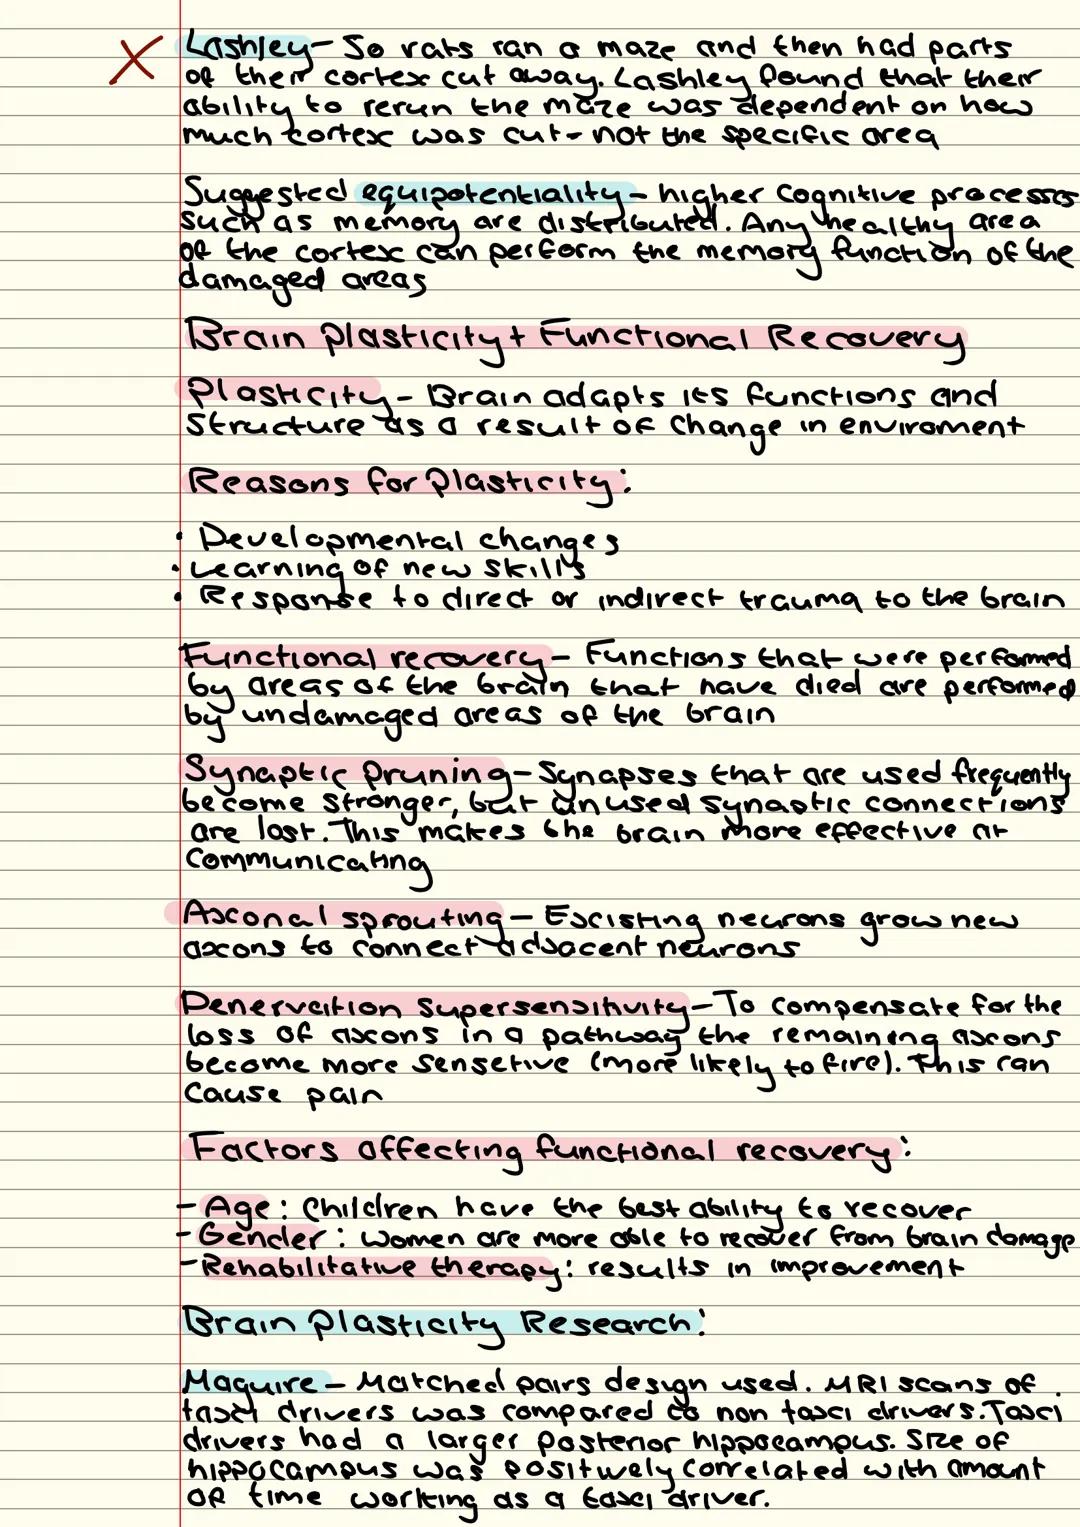 Lashley- So rats ran a maze and then had parts
of their cortex cut away. Lashley found that their
ability to rerun the maze was dependent on how
much cortex was cut- not the specific area
Suggested equipotentiality- higher Cognitive processes
such as memory are distributed. Any healthy area
of the cortex can perform the memory function of the
damaged areas
Brain Plasticity + Functional Recovery
Plasticity- Brain adapts its functions and
Structure as a result of Change in enviroment
Reasons for Plasticity:
· Developmental changes
· Learning of new skills
· Response to direct or indirect trauma to the brain
Functional recovery- Functions that were performed
by areas of the brain that have died are performed
by undamaged areas of the brain
Synaptic Pruning- Synapses that are used frequently
become stronger, but unused synaptic connections
are lost. This makes the brain more effective at
Communicating
Axonal sprouting- Existing neurons grow new
axons to connect adjacent neurons
Denervation Supersensitivity- To compensate for the
loss of axons in a pathway the remaining axons
become more sensetive (more likely to fire). This can
cause pain
Factors affecting functional recovery:
- Age: Children have the best ability to recover
- Gender: women are more able to recover from brain damage
- Rehabilitative therapy: results in improvement
Brain Plasticity Research:
Maguire- Matched pairs design used. MRI scans of
taxi drivers was compared to non taxi drivers. Taxi
drivers had a larger posterior hippocampus. Size of
hippocampus was positively correlated with amount
of time working as a taxi driver.